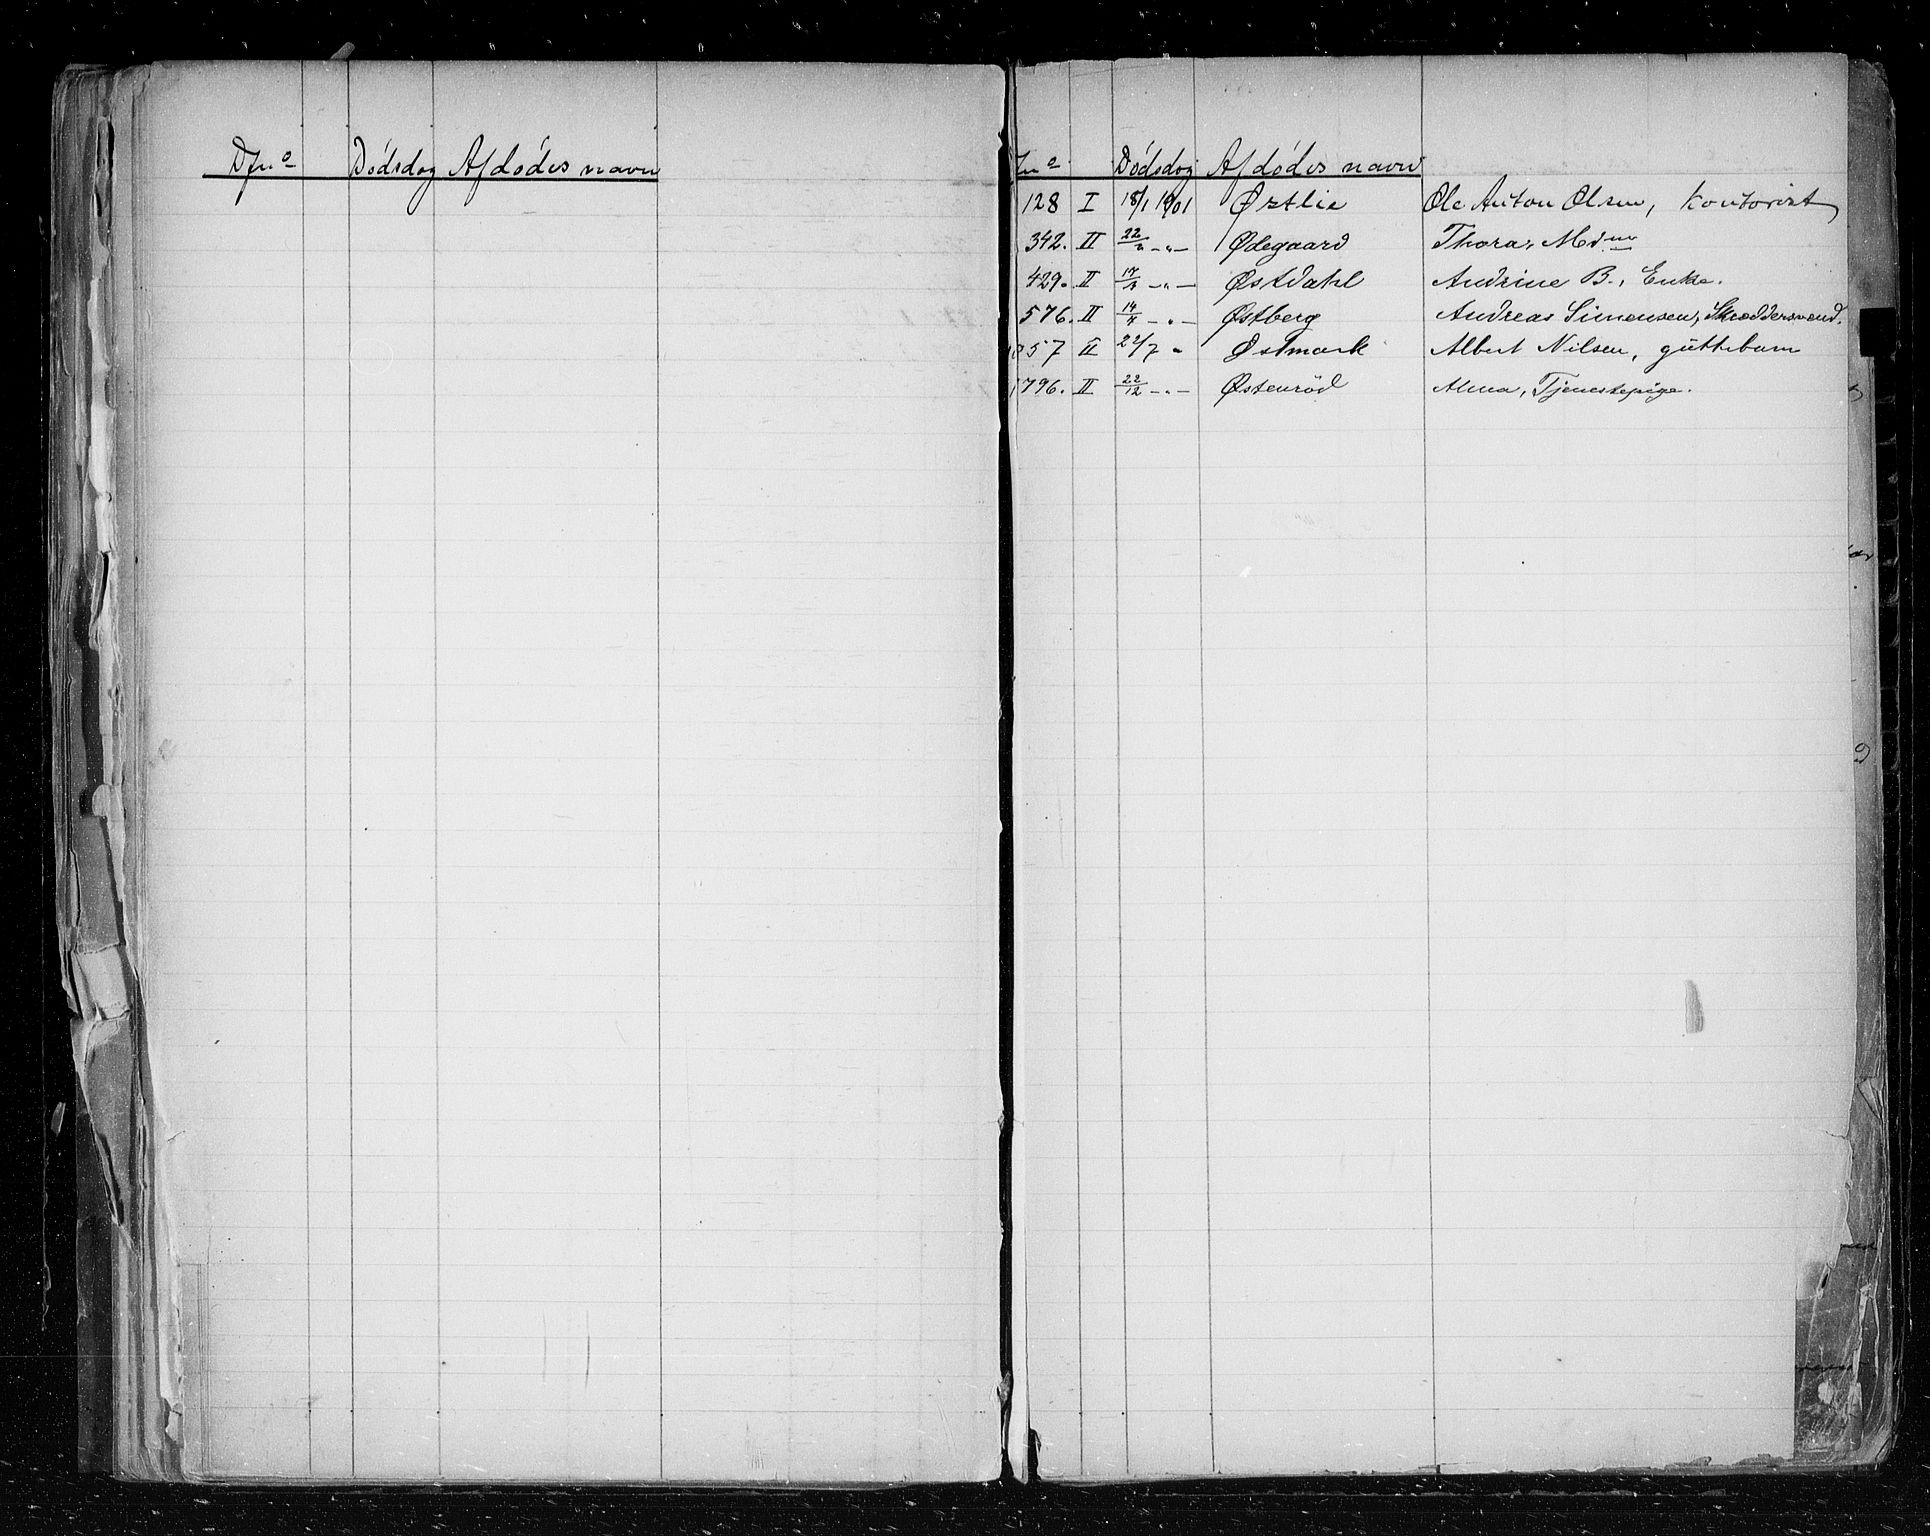 Dfn° Dødsdag Afdødes navn
Jn° Dødsdag Afdødes navn
128 I 18/1 1901 Østlie Ole Anton Olsen, Kontorist
342. II 22/2 -"- Ødegaard Thora, Mdm
429. II 17/3 -"- Østdahl Andrine B., Enke.
576. II 14/4 -"- Østberg Andreas Simensen, Skræddersvend.
1057 II 22/7 " Østmark Albert Nilsen, guttebarn
1796. II 22/12 -"- Østenrød Alma, Tjenestepige.